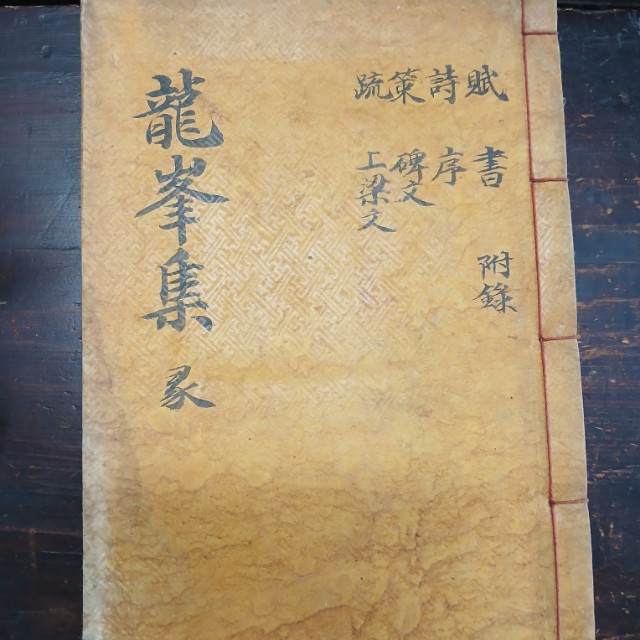 賦 書 附錄
詩 序
策 碑文
疏 上梁文
龍峯集